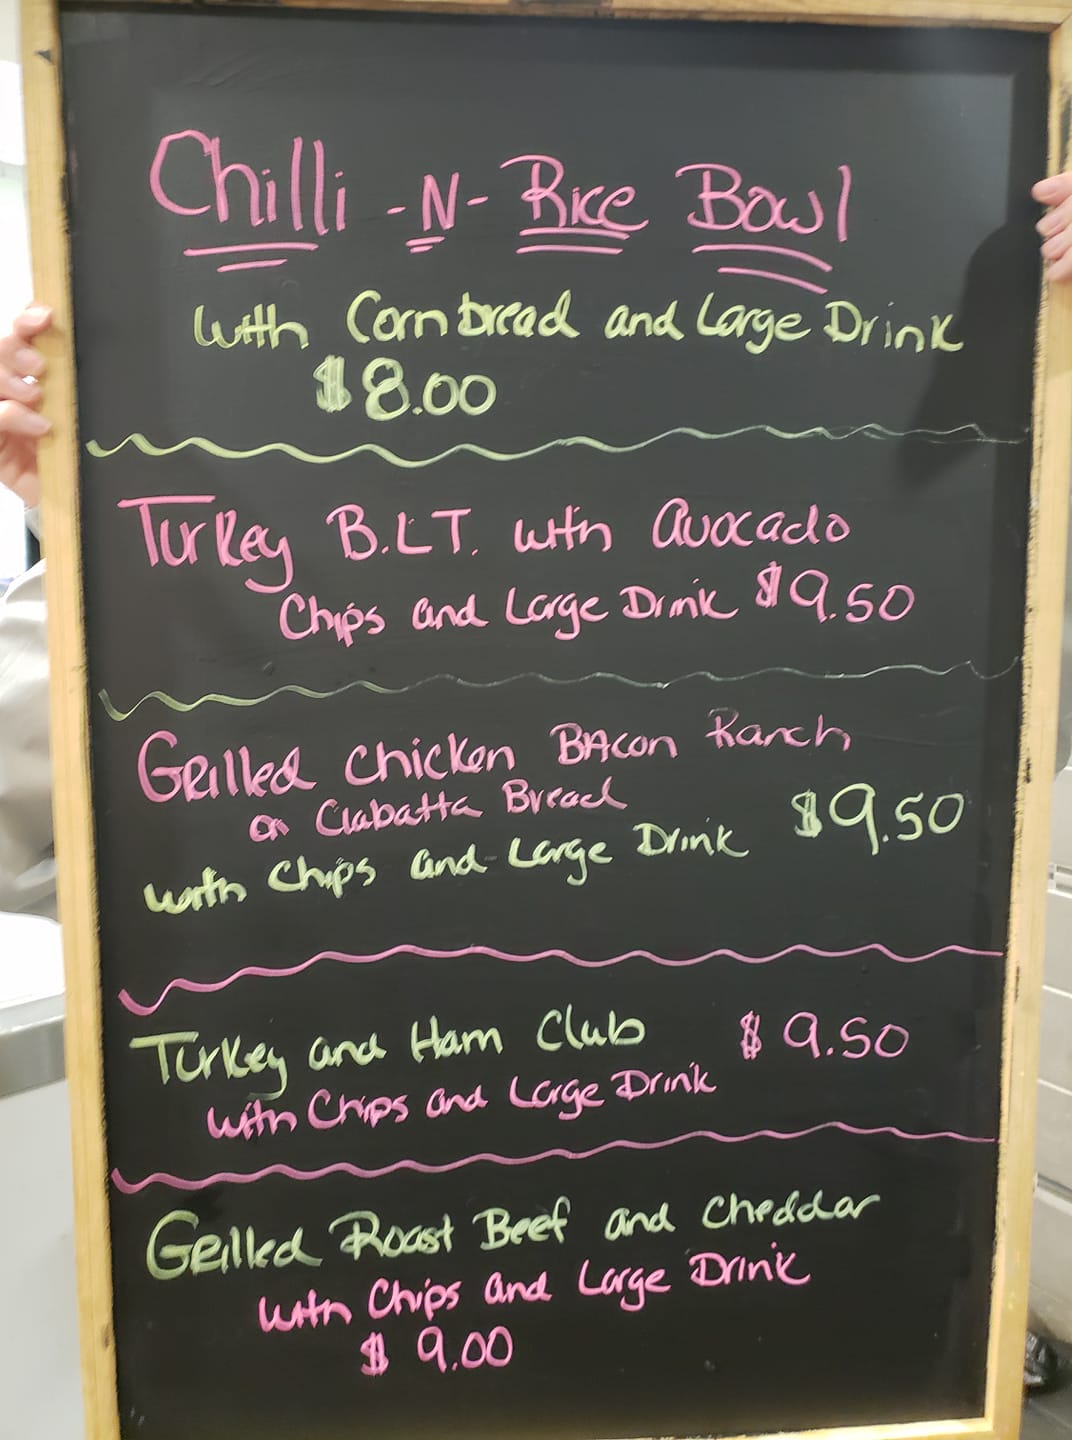 Chilli -N- Rice Bowl
with Cornbread and Large Drink
$8.00
Turkey B.L.T. with Avocado
Chips and Large Drink $9.50
Grilled Chicken BAcon Ranch
on Ciabatta Bread
with Chips and Large Drink $9.50
Turkey and Ham Club $9.50
with Chips and Large Drink
Grilled Roast Beef and cheddar
with Chips and Large Drink
$9.00